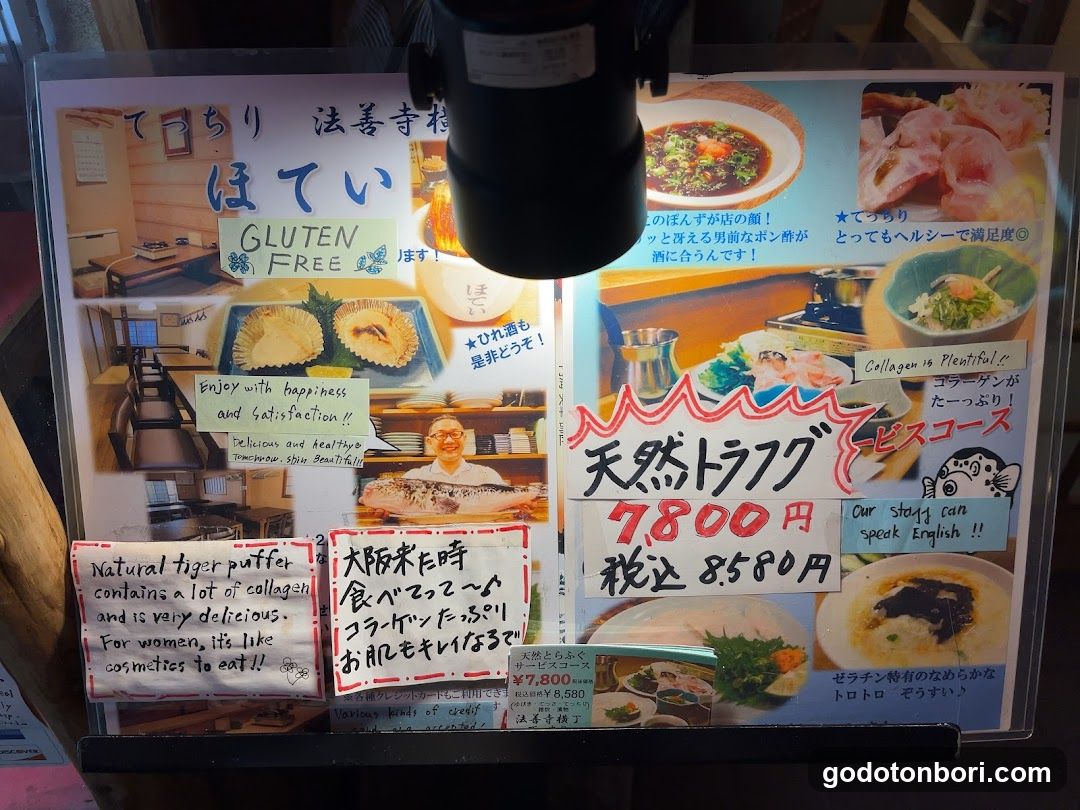 てっちり 法善寺横
ほてい
GLUTEN
FREE
ります!
ほてい
★ひれ酒も
是非どうぞ!
Enjoy with happiness
and satisfaction!!
Delicious and healthye
Tomorrow. skin Beautiful!!
Natural tiger puffer
contains a lot of collagen
and is very delicious.
For women, it's like
cosmetics to eat!!
大阪来た時
食べてって〜♪
コラーゲンたっぷり
お肌もキレイなるで
各種クレジットカードもご利用できます
Various kinds of credit
このぽんずが店の顔!
ッと冴える男前なポン酢が
酒に合うんです!
★てっちり
とってもヘルシーで満足度◎
Collagen is Plentiful!!
コラーゲンが
たーっぷり!
ービスコース
天然トラフグ
7,800円
税込 8,580円
Our stayy can
speak English!!
天然とらふぐ
サービスコース
¥7,800税抜価格
税込価格¥8,580
法善寺横丁
ゼラチン特有のなめらかな
トロトロ ぞうすい♪
DISCOVER
godotonbori.com